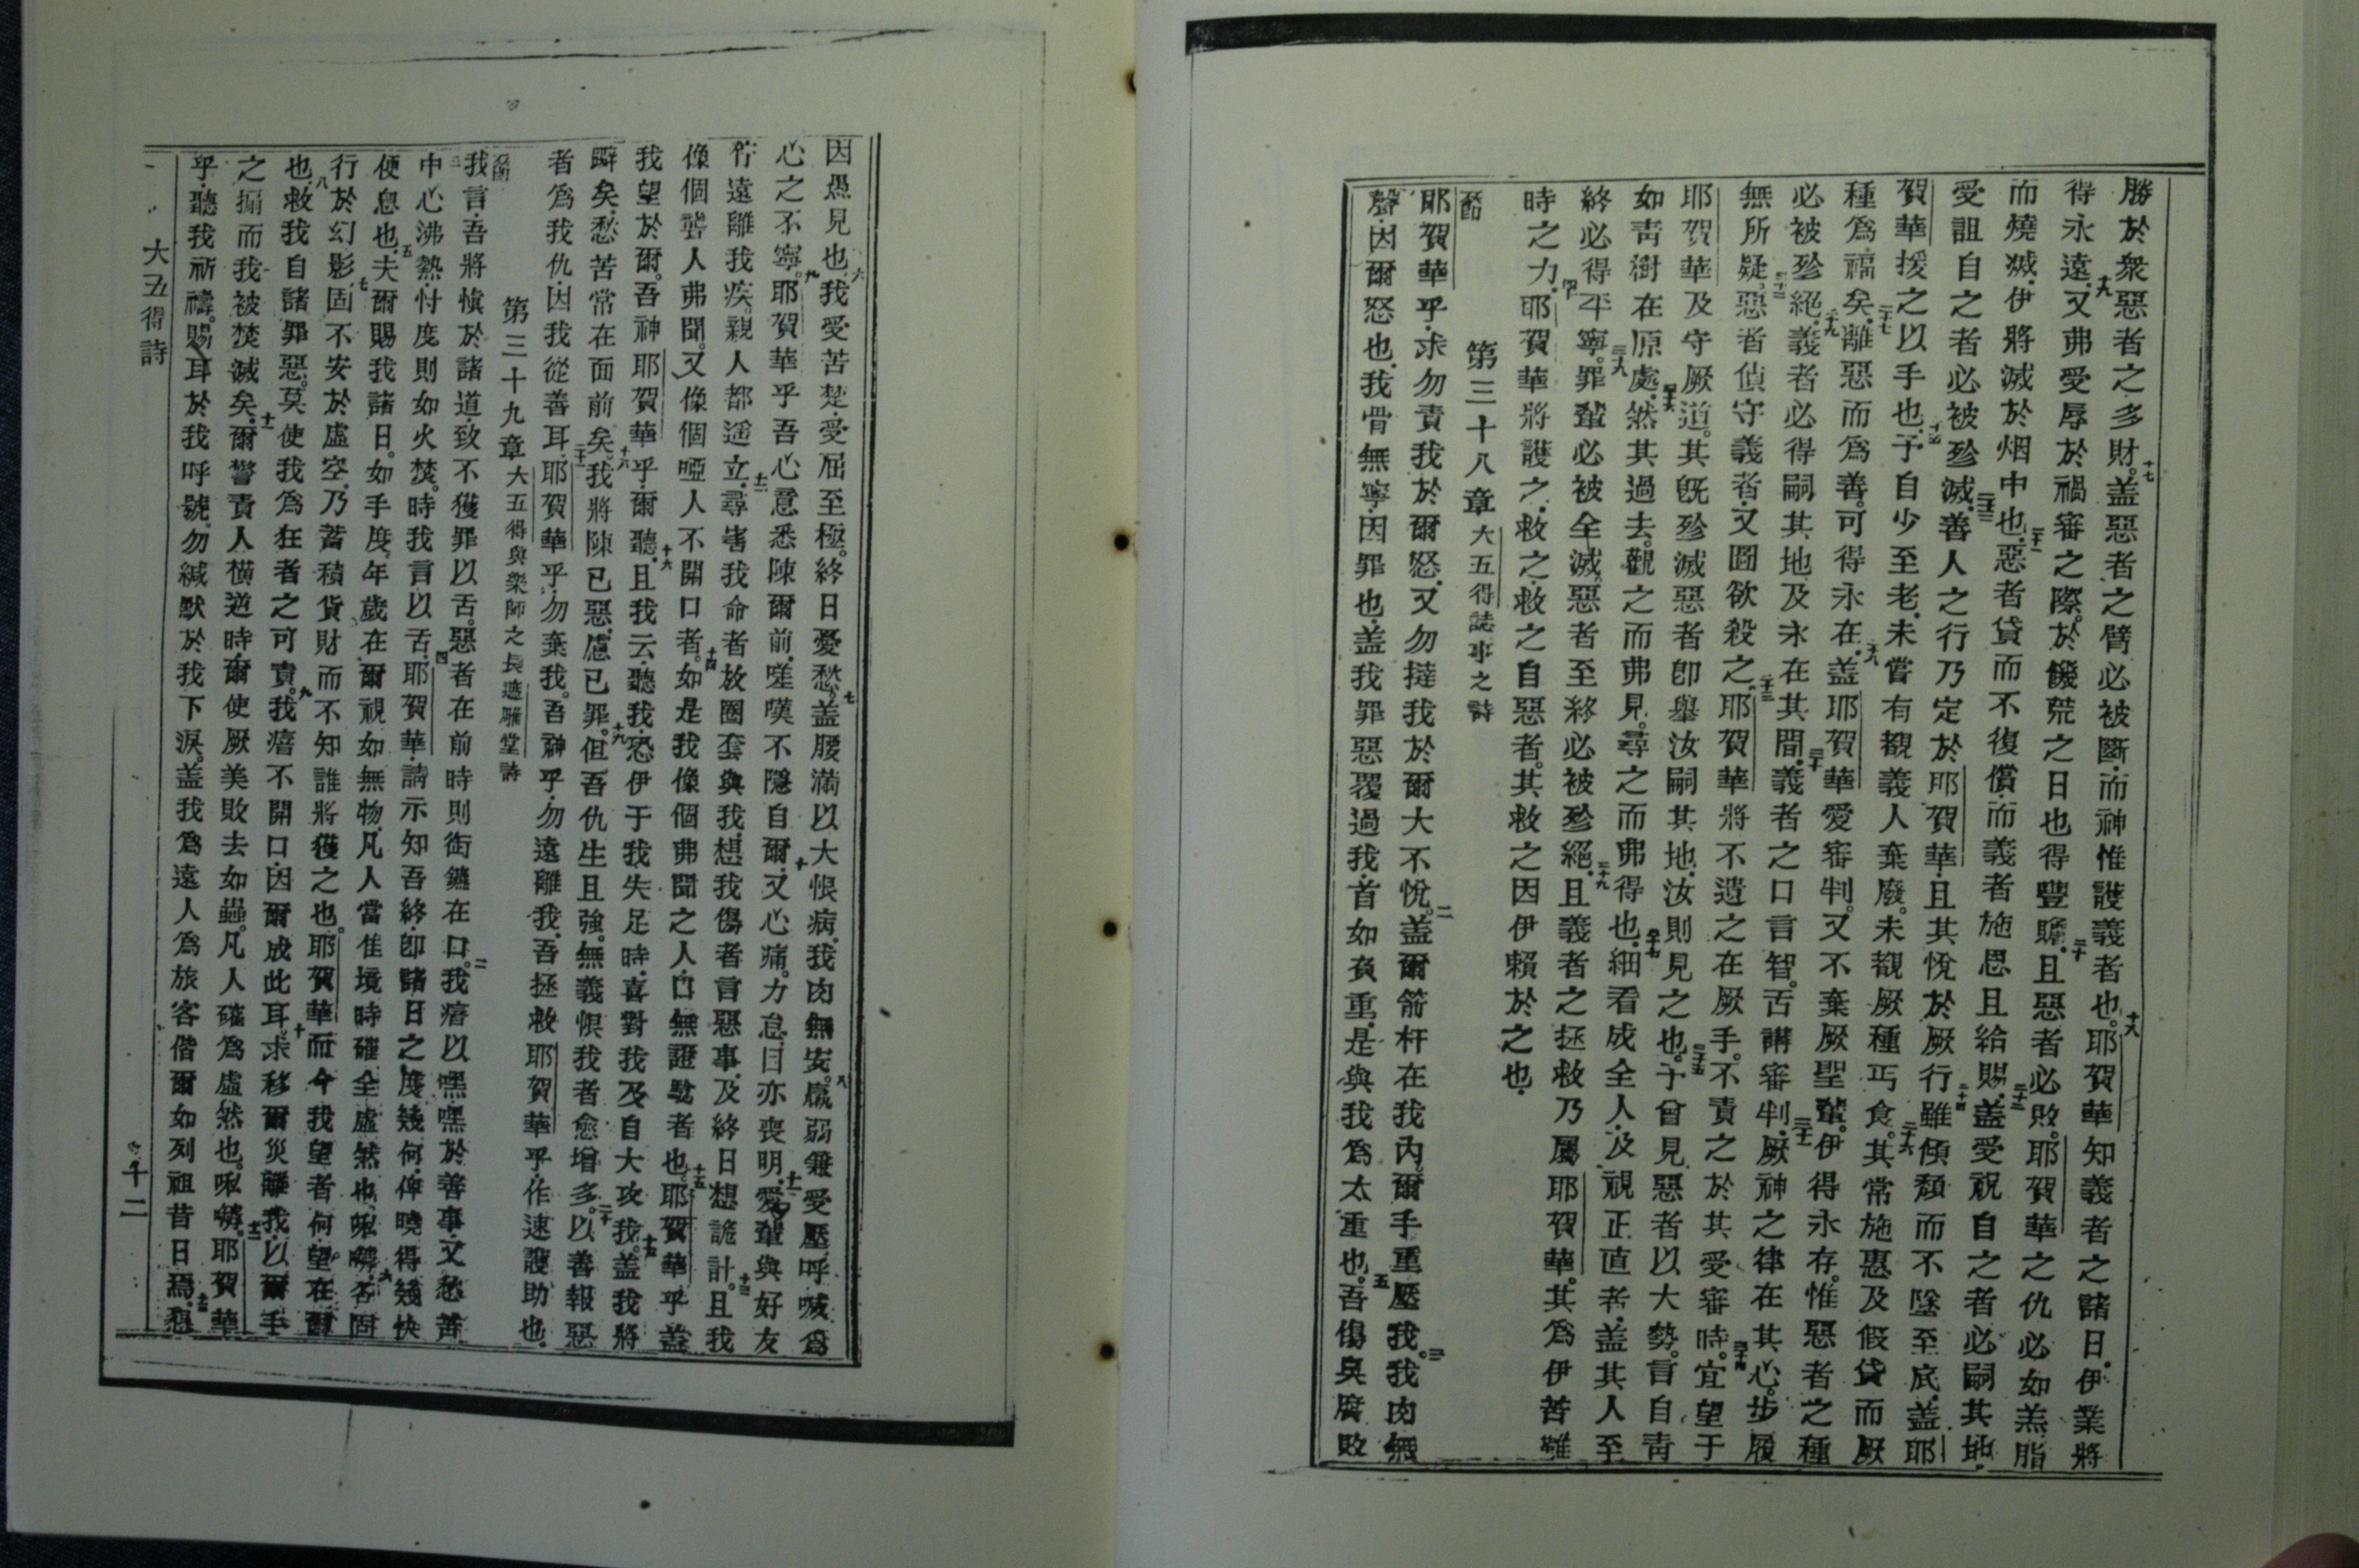 勝於衆惡者之多財。十七盖惡者之臂必被斷、而神惟護義者也。十八耶賀華知義者之諸日、伊業將
得永遠。十九又弗受辱於禍審之際。於饑荒之日也得豐贍。二十且惡者必敗。耶賀華之仇必如羔脂
而燒滅、伊將滅於烟中也。二十一惡者貸而不復償、而義者施恩且給賜。二十二盖受祝自之者必嗣其地、
受詛自之者必被殄滅。二十三善人之行乃定於耶賀華、且其悅於厥行。二十四雖傾頹而不墜至底、盖耶
賀華援之以手也。二十五予自少至老、未嘗有覩義人棄廢。未覩厥種丐食。二十六其常施惠及假貸而厥
種爲福矣。二十七離惡而爲善。可得永在。二十八盖耶賀華愛審判。又不棄厥聖輩。伊得永存。惟惡者之種
必被殄絕。二十九義者必得嗣其地及永在其間。三十義者之口言智。舌講審判。三十一厥神之律在其心。步履
無所疑。三十二惡者偵守義者、又圖欲殺之。三十三耶賀華將不遺之在厥手。不責之於其受審時。三十四宜望于
耶賀華及守厥道。其旣殄滅惡者卽舉汝嗣其地、汝則見之也。三十五予曾見惡者以大勢。言自靑
如靑樹在原處。三十六然其過去。觀之而弗見。尋之而弗得也。三十七細看成全人、及視正直者、盖其人至
終必得平寧。三十八罪輩必被全滅。惡者至終必被殄絕。三十九且義者之拯救乃屬耶賀華。其爲伊苦難
時之力。四十耶賀華將護之、救之、救之自惡者。其救之因伊賴於之也。
第三十八章 大五得誌事之詩
耶賀華乎、求勿責我於爾怒、又勿撻我於爾大不悅。二盖爾箭杆在我內、爾手重壓我。三我肉無
聲、因爾怒也、我骨無寧、因罪也、盖我罪惡覆過我、首如負重、是與我爲太重也。五吾傷臭腐敗
因愚見也。六我受苦楚、受屈至極。終日憂愁。七盖腰滿以大恨病、我肉無安。八羸弱兼受壓、呼喊爲
心之不寧。九耶賀華乎吾心意悉陳爾前、嗟嘆不隱自爾。十又心痛。力怠、目亦喪明。十一愛輩與好友
佇遠離我疾。親人都遥立。十二尋害我命者放圈套與我、想我傷者言惡事、及終日想詭計。十三且我
像個聾人弗聞。又像個啞人不開口者。十四如是我像個弗聞之人、口無證駁者也。十五耶賀華乎盖
我望於爾。吾神耶賀華乎、爾聽。十六且我云、聽我、恐伊于我失足時、喜對我及自大攻我。十七盖我將
躃矣、愁苦常在面前矣。十八我將陳已惡、慮已罪。十九但吾仇生且強。無義恨我者愈增多。二十以善報惡
者爲我仇、因我從善耳。二十一耶賀華乎、勿棄我。吾神乎、勿遠離我、吾拯救耶賀華乎、作速護助也。
第三十九章 大五得與樂師之長遮雕堂詩
我言、吾將愼於諸道、致不獲罪以舌。惡者在前時則銜鑣在口。二我瘖以嘿、嘿於善事、又愁苦
三中心沸熱、忖度則如火焚。時我言以舌、四耶賀華、請示知吾終、卽諸日之度幾何、俾曉得幾快
便息也。五夫爾賜我諸日。如手度、年歲在爾視如無物、凡人當佳境時確全虛然也、𠵽嗬、六否固
行於幻影、固不安於虛空、乃蓄積貨財而不知誰將獲之也。七耶賀華、而今我望者何、望在爾
也。八救我自諸罪惡。莫使我爲狂者之可責。九我瘖不開口、因爾成此耳。十求移爾災離我、以爾手
之搧而我被焚滅矣。十一爾譬責人橫道時、爾使厥美敗去如蟲。凡人確爲虛然也。𠵽嗬。十二耶賀華
乎、聽我祈禱。賜耳於我呼號、勿緘默於我下淚。盖我爲遠人爲旅客偕爾如列祖昔日焉。十三恕
大五得詩
十二